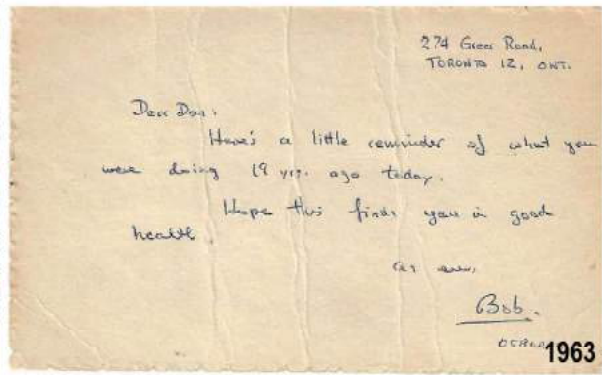 274 Greer Road,
TORONTO 12, ONT.
Dear Don:
Here's a little reminder of what you
were doing 19 yrs. ago today.
Hope this finds you in good
health.
As ever,
Bob.
1963